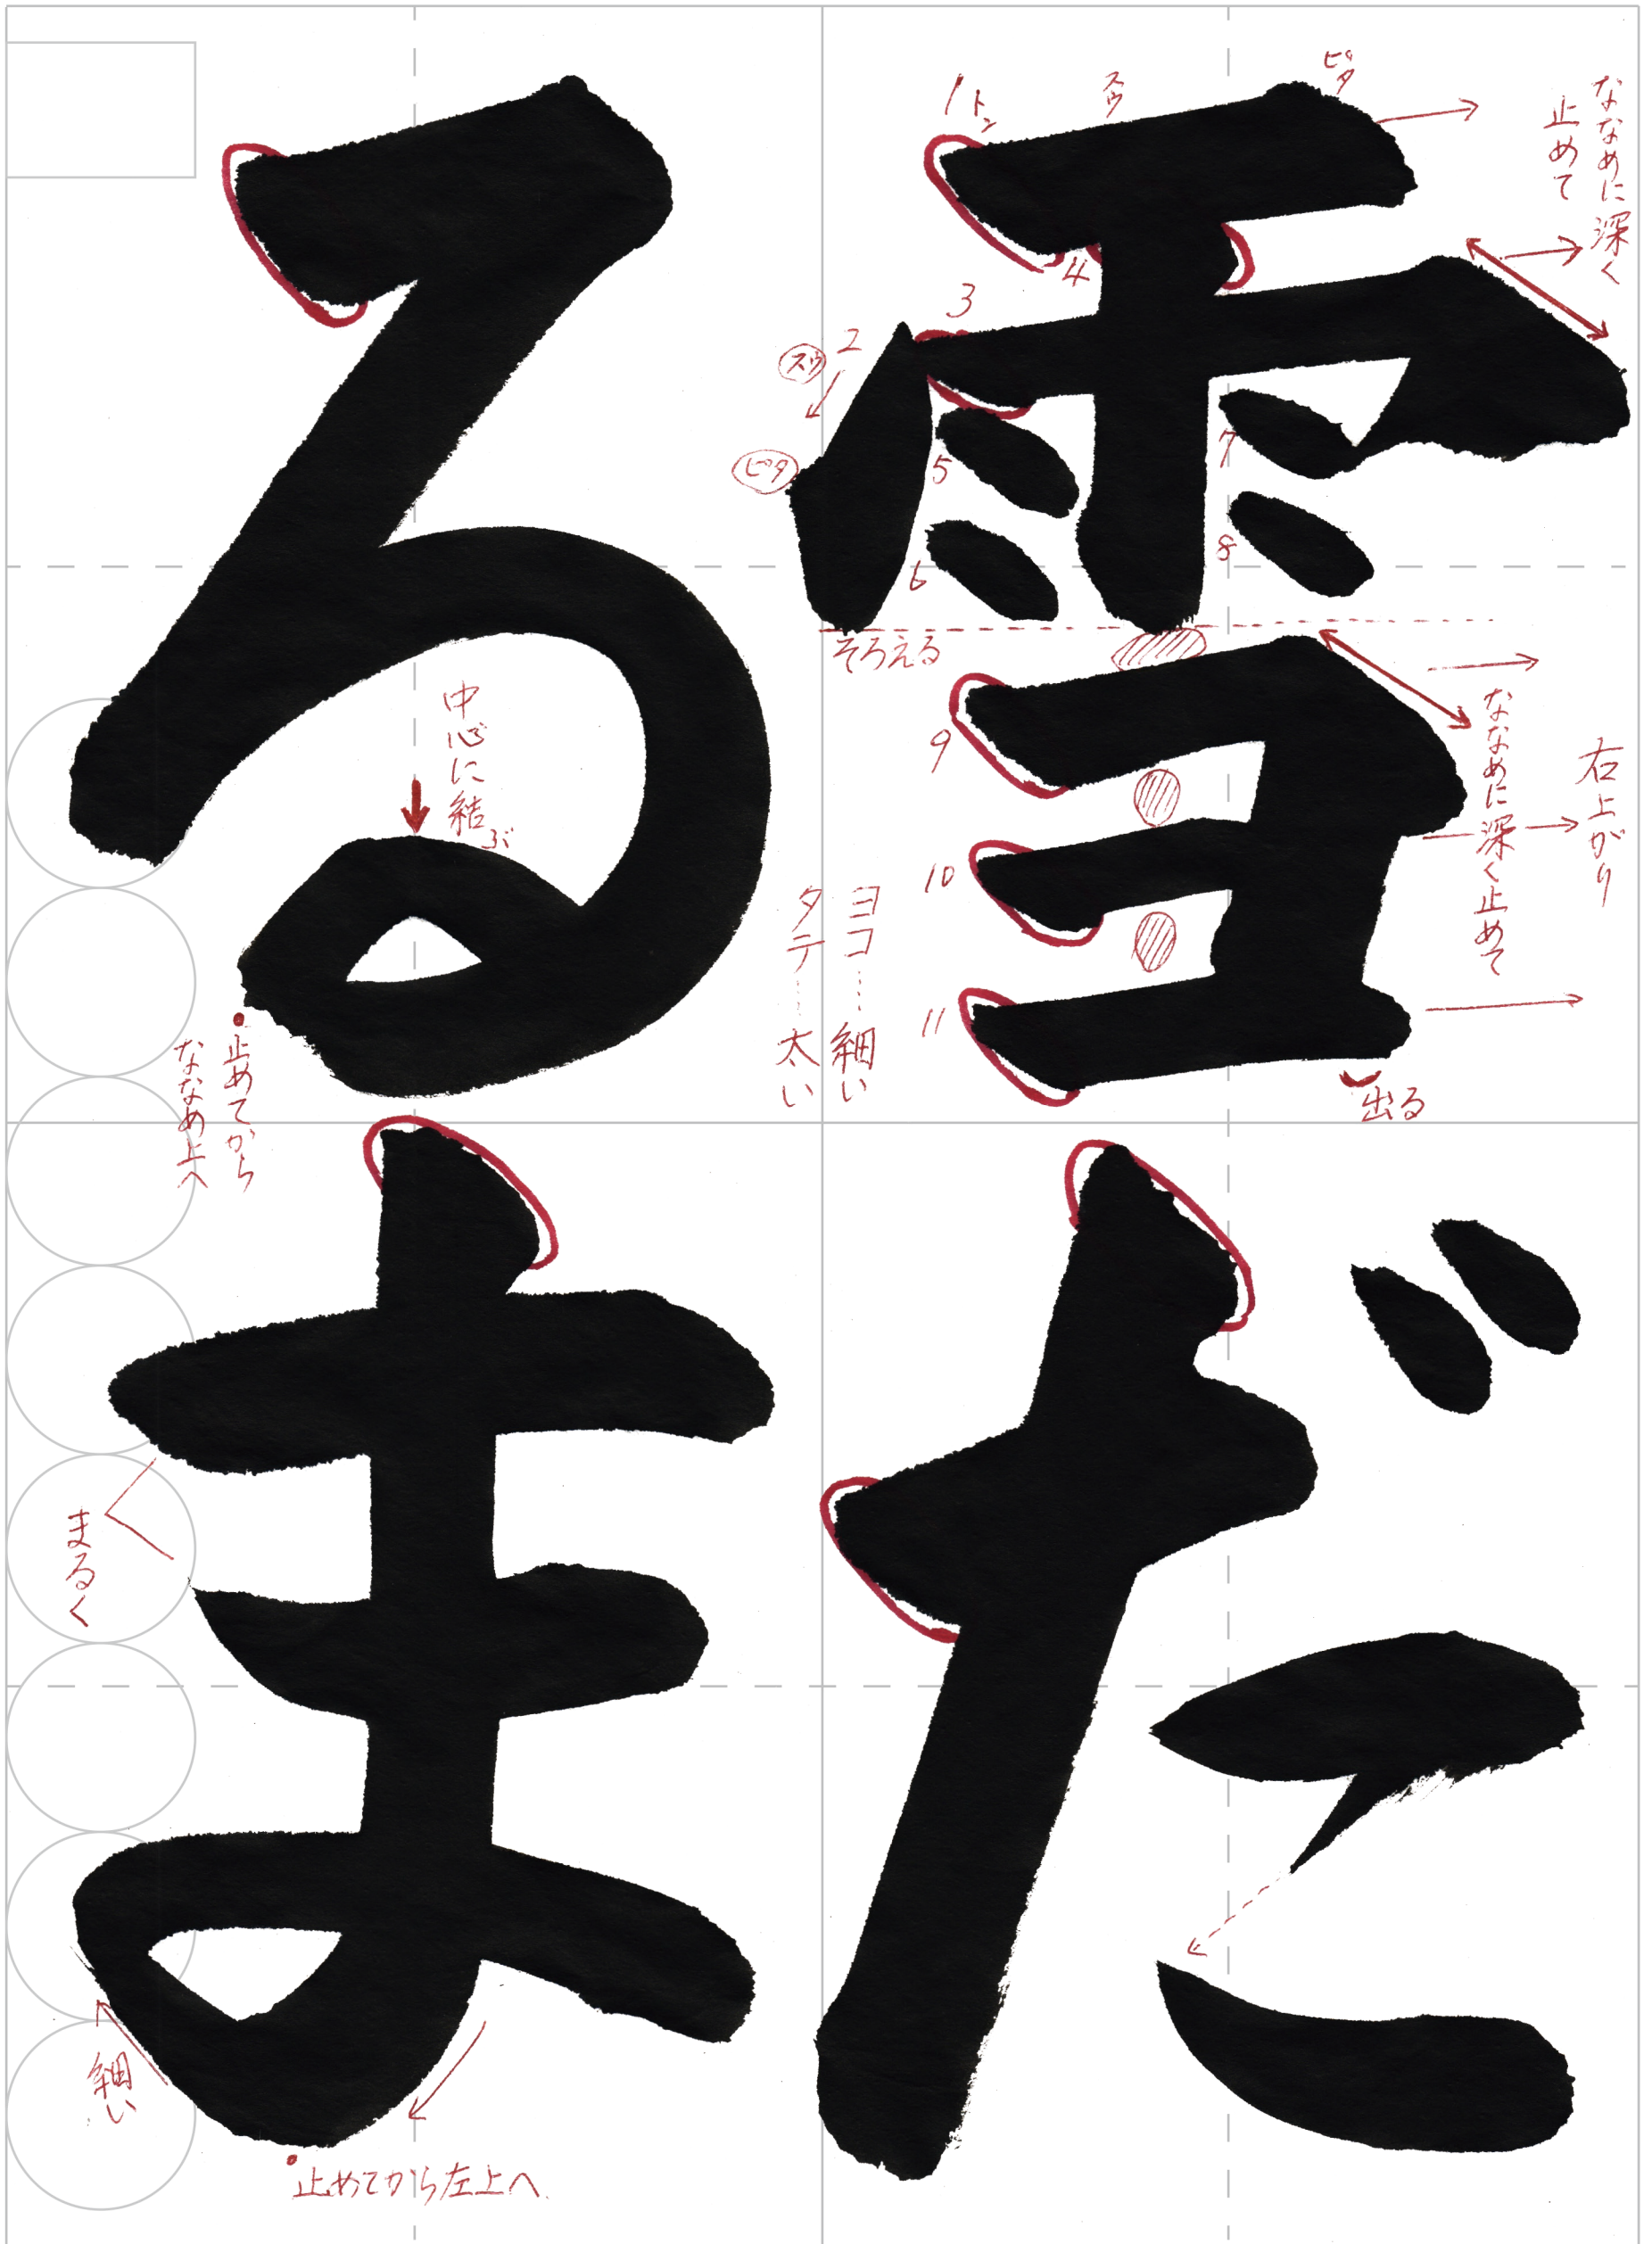 雪だ
るま
1
トン
スウ
ピタ
ななめに深く
止めて
2
スウ
ピタ
3
4
5
6
7
8
そろえる
9
10
11
ななめに深く止めて
右上がり
出る
ヨコ……細い
タテ……太い
中心に結ぶ
止めてから
ななめ上へ
まるく
細い
止めてから左上へ